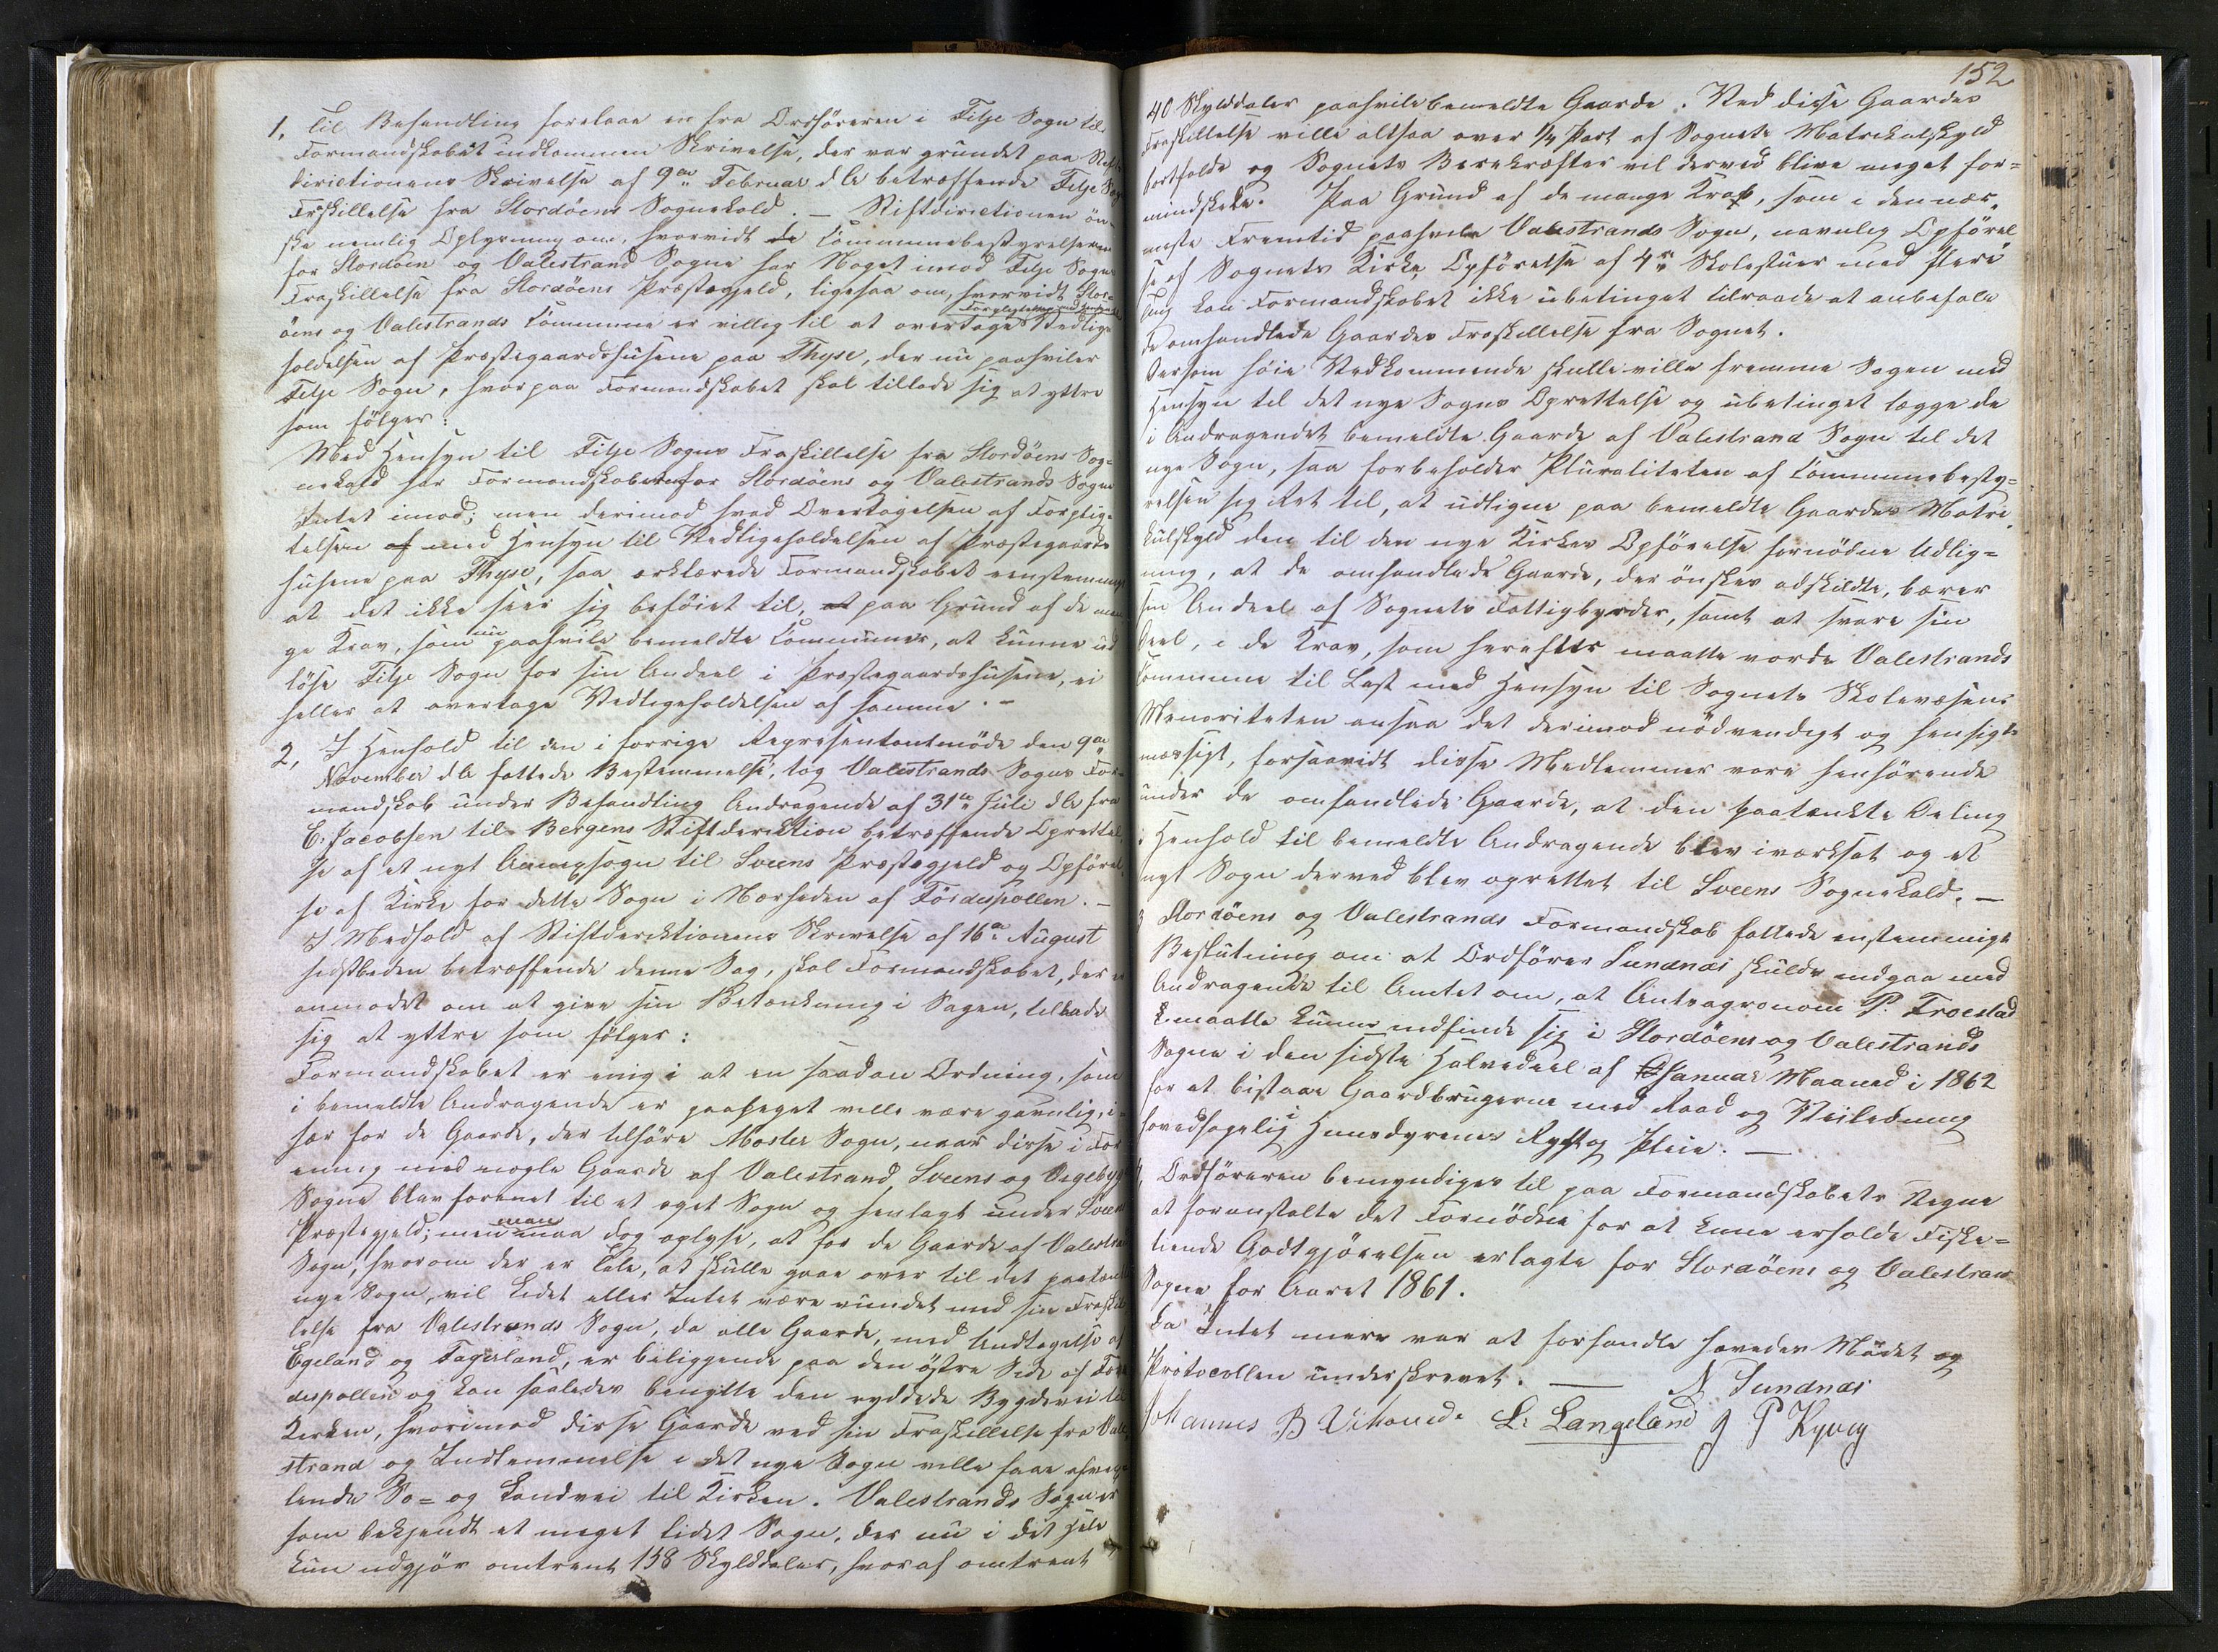 1. Til Behandling forelaae en fra Ordføreren i Fitje Sogn til
Formandskabet indkommen Skrivelse, der var grundet paa Stifts-
direictionens Skrivelse af 9de Februar d. A. betræffende Fitje Sogns
Fraskillelse fra Stordøens Sognekald. – Stiftdirectionen øn-
sker nemlig Oplysning om, hvorvidt de Communebestyrelserne
for Stordøen og Valestrand Sogne har Noget imod Fitje Sogns
Fraskillelse fra Stordøens Præstegjeld, ligesaa om, hvorvidt Stord-
øens og Valestrands Commune er villig til at overtage Forpligtelsen med Hensyn til Vedlige-
holdelsen af Præstegaardshusene paa Thyse, der nu paahviler
Fitje Sogn, hvorpaa Formandskabet skal tillade sig at yttre
som følger:
Med Hensyn til Fitje Sogns Fraskillelse fra Stordøens Sog-
nekald har Formandskabet for Stordøens og Valestrands Sogne
Intet imod; men derimod hvad Overtagelsen af Forplig-
telsen af med Hensyn til Vedligeholdelsen af Præstegaards-
husene paa Thyse, saa erklærede Formandskabet eenstemmigt
at det ikke seer sig beføiet til, at paa Grund af de man-
ge Krav, som nu paahvile bemeldte Communer, at kunne ud-
løse Fitje Sogn for sin Andeel i Præstegaardshusene, ei
heller at overtage Vedligeholdelsen af samme. –
2, I Henhold til den i forrige Repræsentantmøde den 9de
November d. A. fattede Bestemmelse, tog Valestrands Sogns For-
mandskab under Behandling Andragende af 31te Juli d. A. fra
E. Jacobsen til Bergens Stiftdirection betræffende Oprettel-
se af et nyt Annexsogn til Sveens Præstegjeld og Opførel-
se af Kirke for dette Sogn i Nærheden af Førdespollen. –
I Medhold af Stiftdirektionens Skrivelse af 16de August
sidstleden betræffende denne Sag, skal Formandskabet, der er
anmodet om at give sin Betænkning i Sagen, tillade
sig at yttre som følger:
Formandskabet er enig i at en saadan Ordning, som
i bemeldte Andragende er paapeget ville være gavnlig, i-
sær for de Gaarde, der tilhøre Moster Sogn, naar disse i For-
ening med nogle Gaarde af Valestrand, Sveens og Vigebygds
Sogne blev forenet til et eget Sogn og henlagt under Sveens
Præstegjeld; men man maa dog oplyse, at for de Gaarde af Valestrands
Sogn, hvorom der er Tale, at skulle gaae over til det paatænkte
nye Sogn, vil Lidet eller Intet være vundet med sin Fraskil-
lelse fra Valestrands Sogn, da alle Gaarde, med Undtagelse af
Egeland og Fagerland, er beliggende paa den østre Side af Før-
despollen og kan saaledes benytte den ryddede Bygdevei til
Kirken, hvorimod disse Gaarde ved sin Fraskillelse fra Vale-
strand og Indlemmelse i det nye Sogn ville faae afvex-
lende Sø- og Landvei til Kirken. Valestrands Sogn er
som bekjendt et meget lidet Sogn, der nu i det Hele
kun udgjør omtrent 158 Skylddaler, hvoraf omtrent
152
40 Skylddaler paahvile bemeldte Gaarde. Ved disse Gaardes
Fraskillelse ville altsaa over 1/4 Part af Sognets Matrikulskyld
bortfalde og Sognets Bærekræfter vil derved blive meget for-
mindskede. Paa Grund af de mange Krav, som i den nær-
meste Fremtid paahvile Valestrands Sogn, navnlig Opførel-
se af Sognets Kirke, Opførelse af 4re Skolestuer med flere
Ting kan Formandskabet ikke ubetinget tilraade at anbefale
de omhandlede Gaardes Fraskillelse fra Sognet.
Dersom høie Vedkommende skulle ville fremme Sagen med
Hensyn til det nye Sogns Oprettelse og ubetinget lægge de
i Andragendet bemeldte Gaarde af Valestrand Sogn til det
nye Sogn, saa forbeholder Pluraliteten af Communebesty-
relsen sig Ret til, at udligne paa bemeldte Gaardes Matri-
kulskyld den til den nye Kirkes Opførelse fornødne Udlig-
ning, at de omhandlede Gaarde, der ønskes adskildte, bærer
sin Andeel af Sognets Fattigbyrder, samt at svare sin
Deel, i de Krav, som herefter maatte vorde Valestrands
Commune til Last med Hensyn til Sognets Skolevæsen.
Minoriteten ansaa det derimod nødvendigt og hensigts-
mæssigt, forsaavidt disse Medlemmer vare henhørende
under de omhandlede Gaarde, at den paatænkte Deling
i Henhold til bemeldte Andragende blev iværksat og et
nyt Sogn derved blev oprettet til Sveens Sognekald. –
3 Stordøens og Valestrands Formandskab fattede enstemmigt
Beslutning om at Ordfører Sundnæs skulde indgaa med
Andragende til Amtet om, at Amtsagronom P. Troestad
maatte kunne indfinde sig i Stordøens og Valestrands
Sogne i den sidste Halvedeel af Januar Maaned i 1862
for at bistaae Gaardbrugerne med Raad og Veiledning
hovedsagelig i Huusdyrenes Røgt og Pleie. –
4, Ordføreren bemyndiges til paa Formandskabets Vegne
at foranstalte det Fornødne for at kunne erholde Fiske-
tiende Godtgjørelsen erlagte for Stordøens og Valestrands
Sogne for Aaret 1861.
Da Intet mere var at forhandle hævedes Mødet og
Protocollen underskrevet. — N Sundnæs
Johannes B L. Langeland P Kyvig